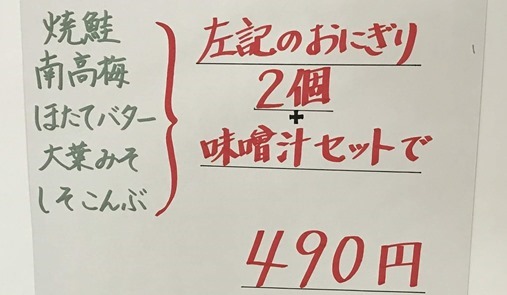 焼鮭
南高梅
ほたてバター
大葉みそ
しそこんぶ
左記のおにぎり
2個
+
味噌汁セットで
490円